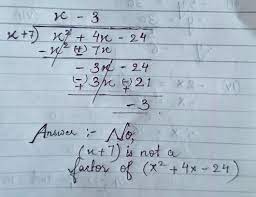 x - 3
x+7) x² + 4x - 24
-x² (±) 7x
- 3x - 24
(-)+ 3x (-)+ 21
- 3
Answer :- No,
(x+7) is not a
factor of (x² + 4x - 24)